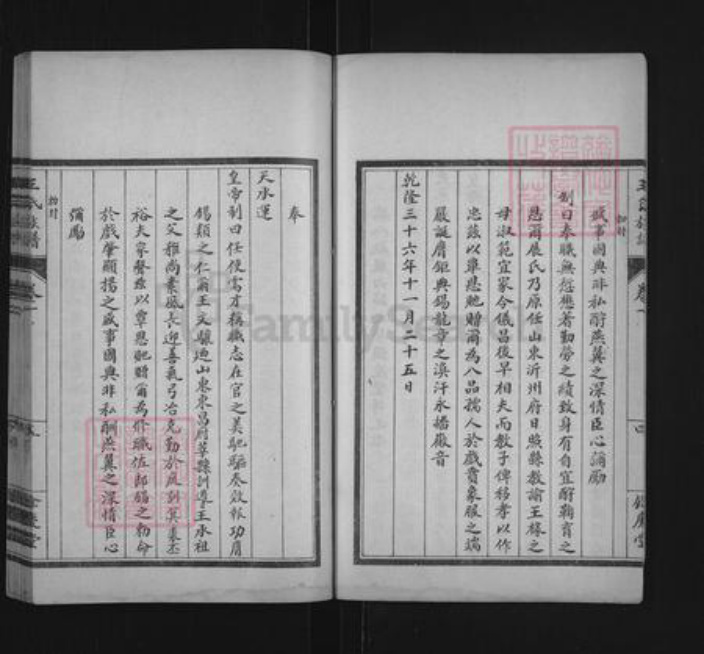 盛事國典非私酧燕翼之深情臣心彌勵
制曰奉職無愆懋著勤勞之績致身有自宜酧鞠育之
恩爾展氏乃原任山東沂州府日照縣教諭王椽之
母淑範宜家令儀昌後早相夫而教子俾移孝以作
忠茲以覃恩貤贈爾為八品孺人於戲賁象服之端
嚴誕膺鉅典錫龍章之渙汗永播徽音
乾隆三十六年十一月二十五日
王氏族譜
卷一
四
奉
天承運
皇帝制曰任使需才稱職志在官之美馳驅奏效報功膺
錫類之仁爾王文驥迺山東東昌府莘縣訓導王永祖
之父雅尚素風長迎善氣弓冶克勤於庭訓箕裘丕
裕夫家聲茲以覃恩貤贈爾為修職佐郎錫之勅命
於戲肇顯揚之盛事國典非私酬燕翼之深情臣心
彌勵
王氏族譜
卷一
FamilySearch